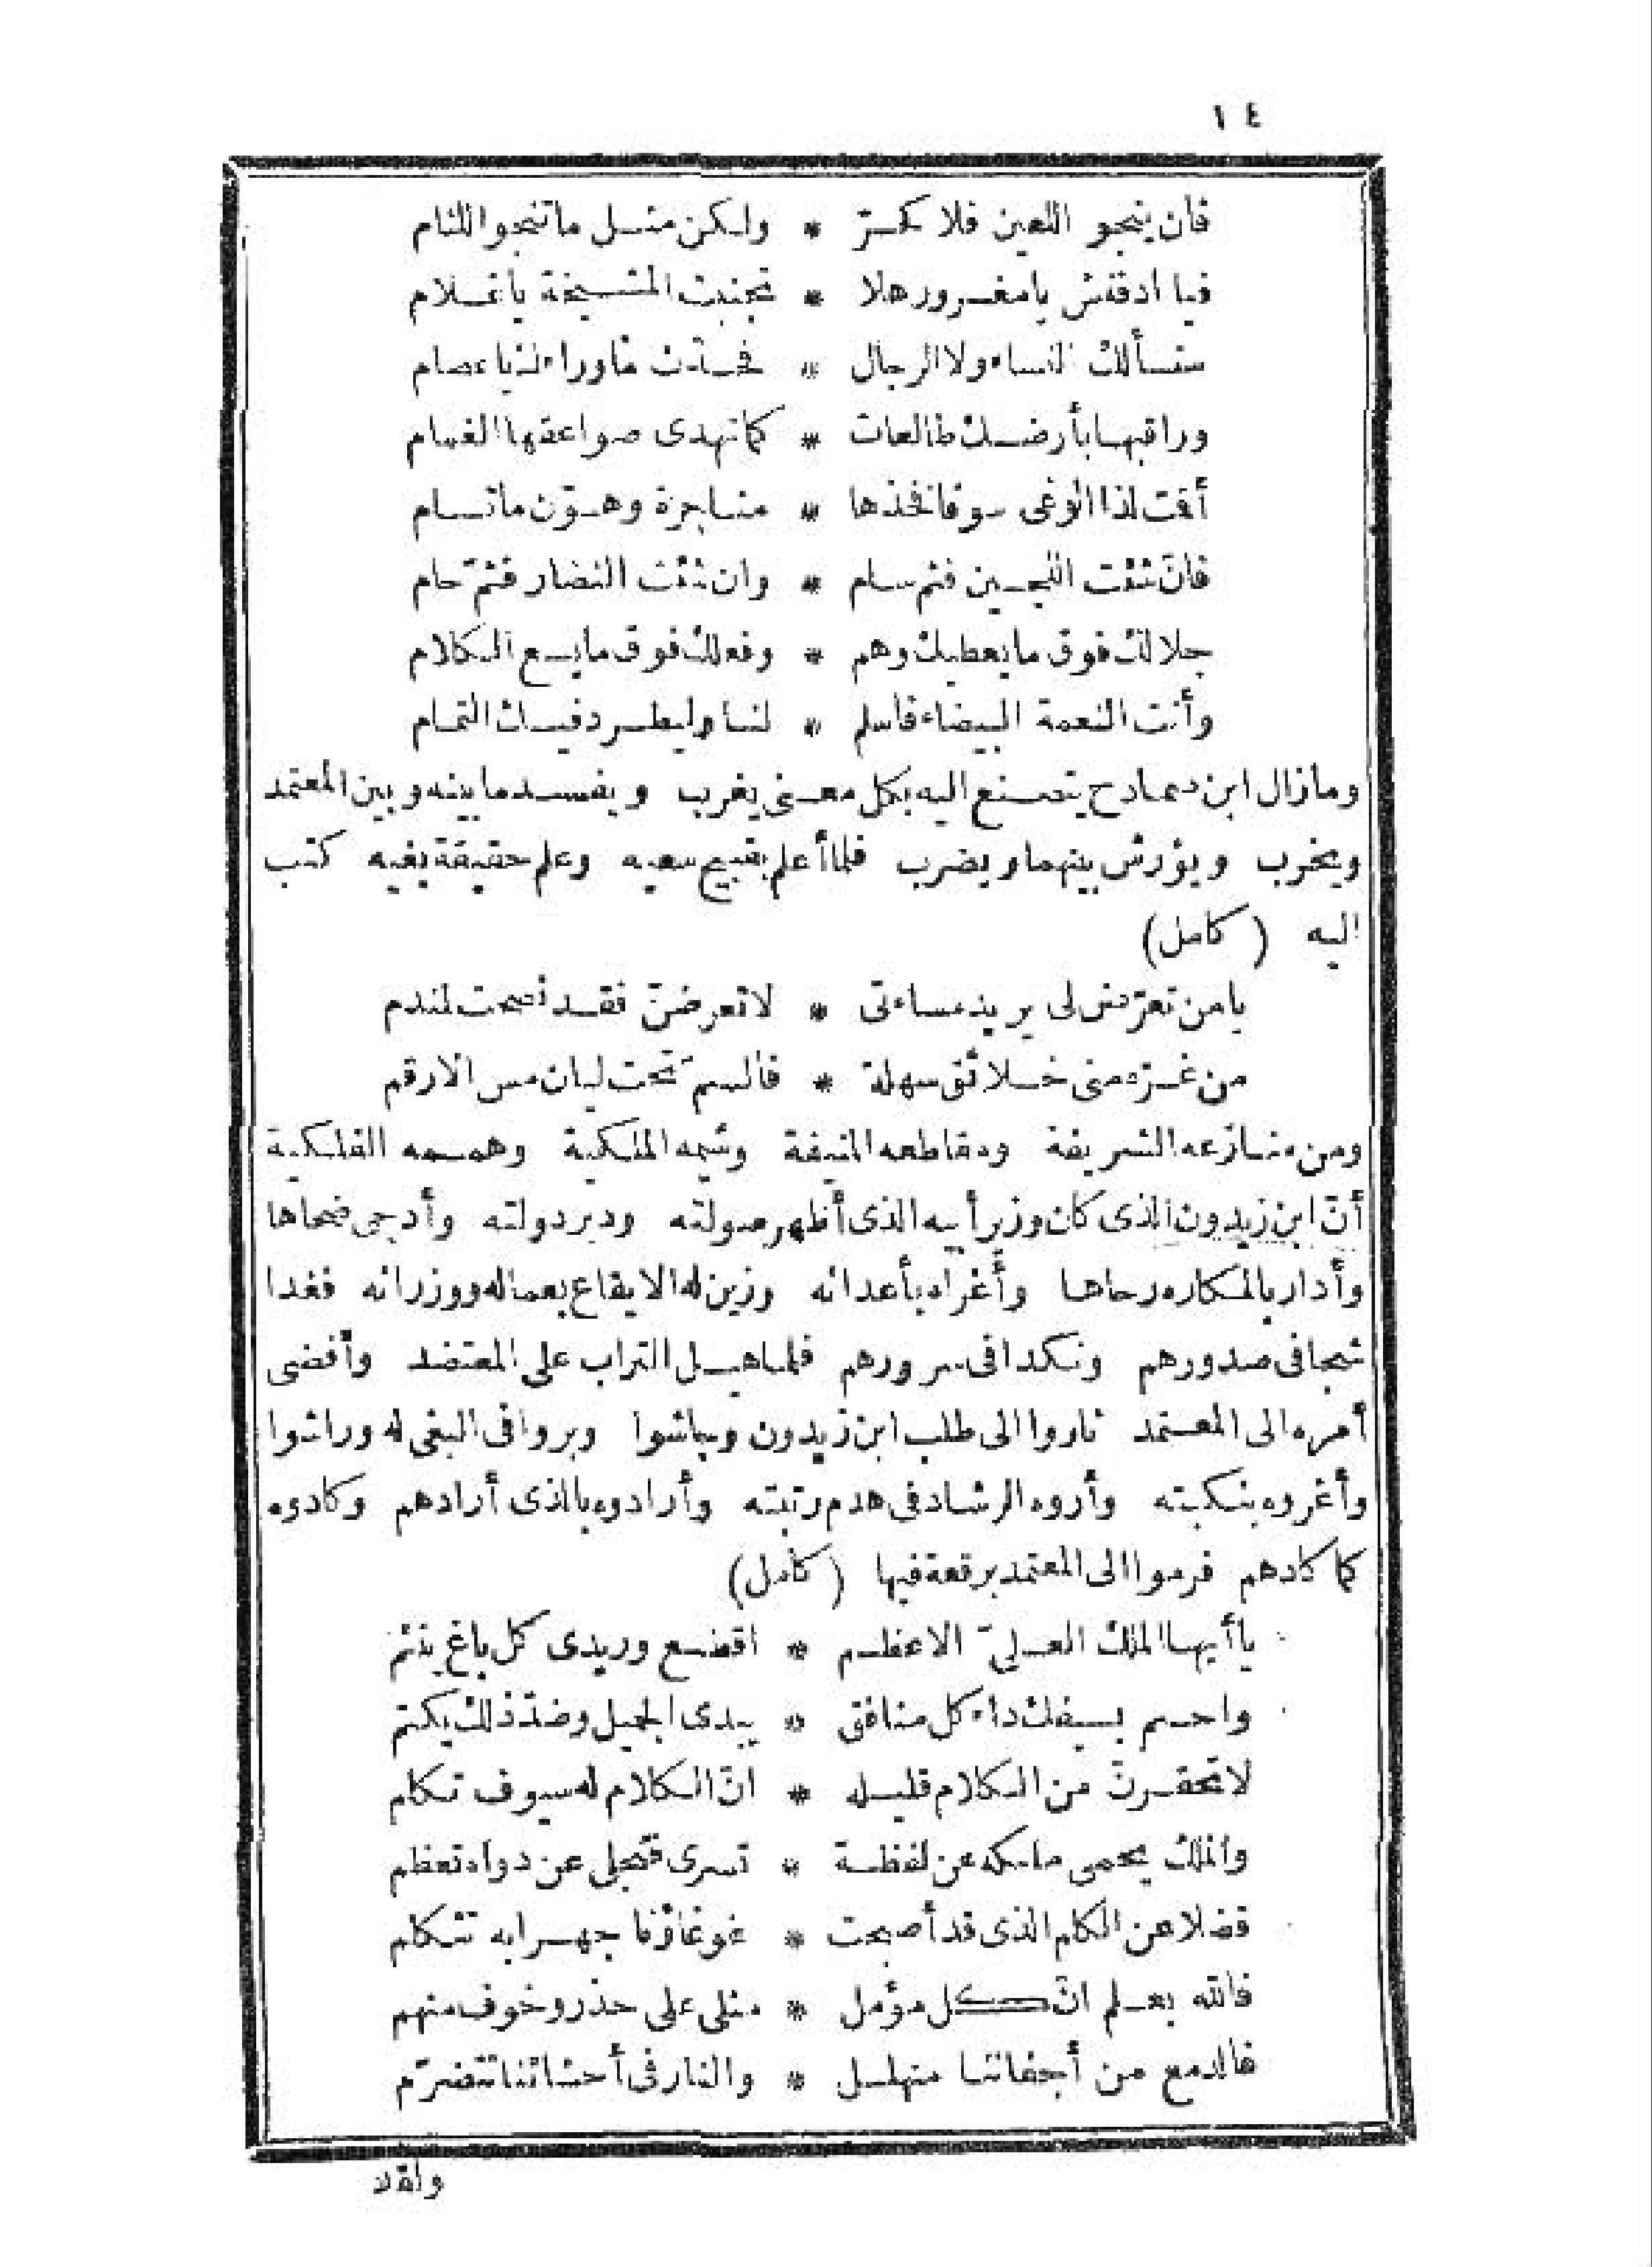 ١٤
فان ينجو اللعين فلا كحرّ * ولكن مثل ما تنجو اللئام
فيا ادفنش يا مغرور هلا * تجنبت المشيخة يا غلام
ستسألك النساء ولا الرجال * فحدّث ما وراءك يا عصام
وراقبها بأرضك طالعات * كما تهدى صواعقها الغمام
أقمت لذا الوغى سوقا فخذها * مناجزة وهوّن ما تسام
فان شئت اللجين فثم سام * وان شئت النضار فثمّ حام
جلالك فوق ما يعطيك وهم * وفعلك فوق ما يسع الكلام
وأنت النعمة البيضاء فاسلم * لنا وليطرد فيك التمام
وما زال ابن صمادح يتصنع اليه بكل معنى يغرب ويفسد ما بينه وبين المعتمد
ويخرب ويؤرش بينهما ويضرب فلما أعلم بقبيح سعيه وعلم حقيقة بغيه كتب
اليه (كامل)
يا من تعرّض لى يريد مساءتى * لا تعرضنّ فقد نصحت لمندم
من غرّه منى خلائق سهلة * فالسمّ تحت ليان مس الارقم
ومن منازعه الشريفة ومقاطعه المنيفة وشيمه الملكية وهممه الفلكية
أنّ ابن زيدون الذى كان وزير أبيه الذى أظهر صولته ودبر دولته وأدجى ضحاها
وأدار بالمكاره رحاها وأغراه بأعدائه وزين له الايقاع بعماله ووزرائه فغدا
شجا فى صدورهم ونكدا فى سرورهم فلما هيل التراب على المعتضد وأفضى
أمره الى المعتمد ثاروا الى طلب ابن زيدون وجاشوا وبروا فى البغى له وراشوا
وأغروه بنكبته وأروه الرشاد فى هدم رتبته وأرادوه بالذى أرادهم وكادوه
كما كادهم فرموا الى المعتمد برقعة فيها (كامل)
يا أيها الملك العلىّ الاعظم * اقطع وريدى كل باغ ينئم
واحسم بسيفك داء كل منافق * يبدى الجميل وضدّ ذلك يكتم
لا تحقرنّ من الكلام قليله * انّ الكلام له سيوف تكلم
والملك يحمى ملكه عن لفظة * تسرى فتجلى عن دواه تعظم
فضلا عن الكلم الذى قد أصبحت * غوغاؤنا جهرا به تتكلم
فالله يعلم انّ كل مؤمل * مثلى على حذر وخوف منهم
فالدمع من أجفاننا منهلل * والنار فى أحشائنا تتضرّم